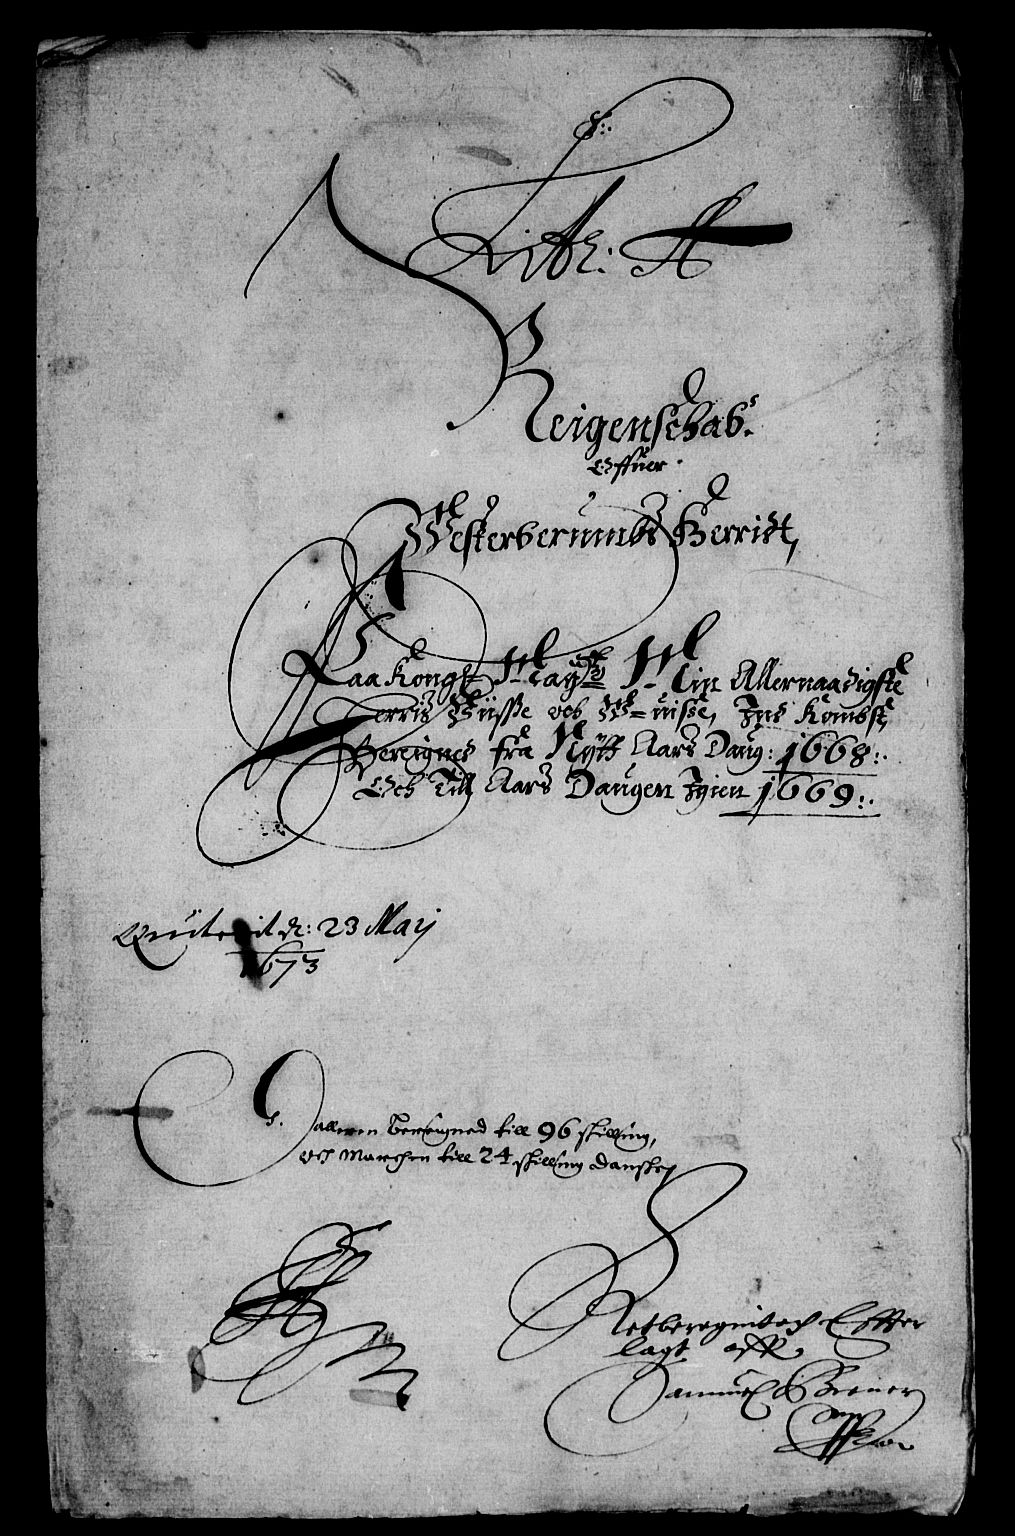 Litr: A
Reigenschab
Offuer
Westerberumbs Herritt,
Paa Kongl: Maÿtz Min Allernaadigste
Herris Hüsse och Indkombst,
Bereignes fra Nÿtt Aars Daug: 1668:.
Och Till Aars Daugen Igien 1669:.
Qviterit d: 23 Maij
1673
Dalleren bereigned till 96 skilling,
och Marchen till 24 skilling danske
Retberegnitoch Effter
lagt aff
Sammuel